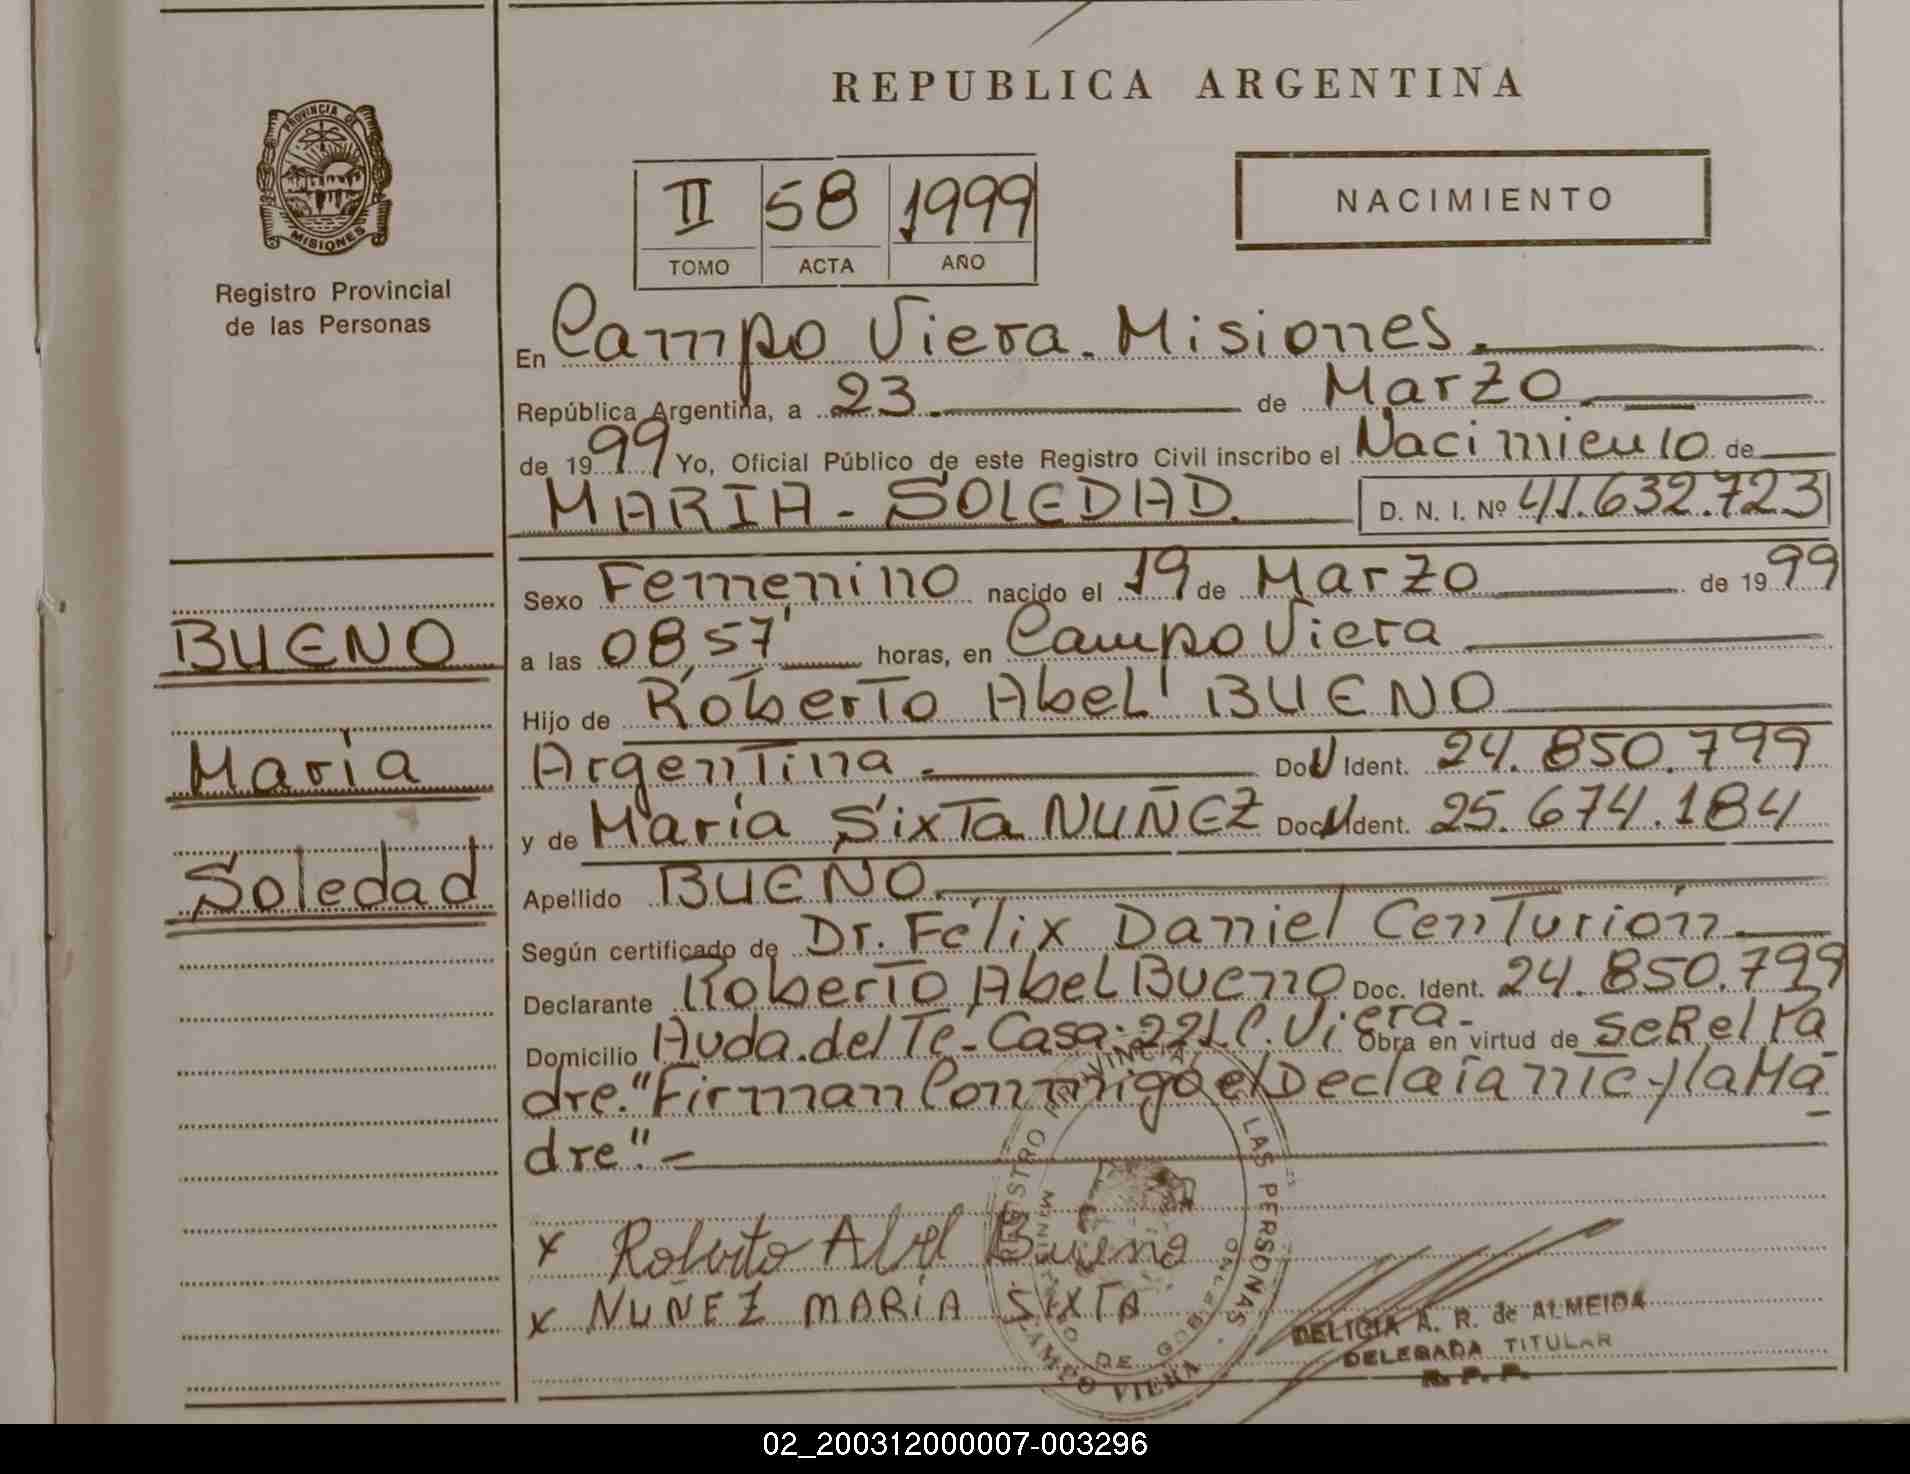 REPUBLICA ARGENTINA
PROVINCIA DE
MISIONES
Registro Provincial
de las Personas
II 58 1999
TOMO ACTA AÑO
NACIMIENTO
En Campo Viera - Misiones.
República Argentina, a 23 de Marzo
de 1999 Yo, Oficial Público de este Registro Civil inscribo el Nacimiento de
MARIA - SOLEDAD. D. N. I. Nº 41.632.723
Sexo Femenino nacido el 19 de Marzo de 1999
a las 08,57' horas, en Campo Viera
Hijo de Roberto Abel BUENO
Argentina - Doc. Ident. 24.850.799
y de María Sixta NUÑEZ Doc. Ident. 25.674.184
Apellido BUENO.
Según certificado de Dr. Félix Daniel Centurión
Declarante Roberto Abel Bueno Doc. Ident. 24.850.799
Domicilio Avda. del Té - Casa: 221 C. Viera - Obra en virtud de Ser el Pa
dre. "Firman Conmigo el Declarante y la Ma-
dre" -
x Roberto Abel Bueno
x NUÑEZ MARÍA SIXTA
BUENO
María
Soledad
REGISTRO PROVINCIAL DE LAS PERSONAS
MINISTERIO DE GOBIERNO
CAMPO VIERA
DELICIA A. R. de ALMEIDA
DELEGADA TITULAR
R. P. P.
02_200312000007-003296